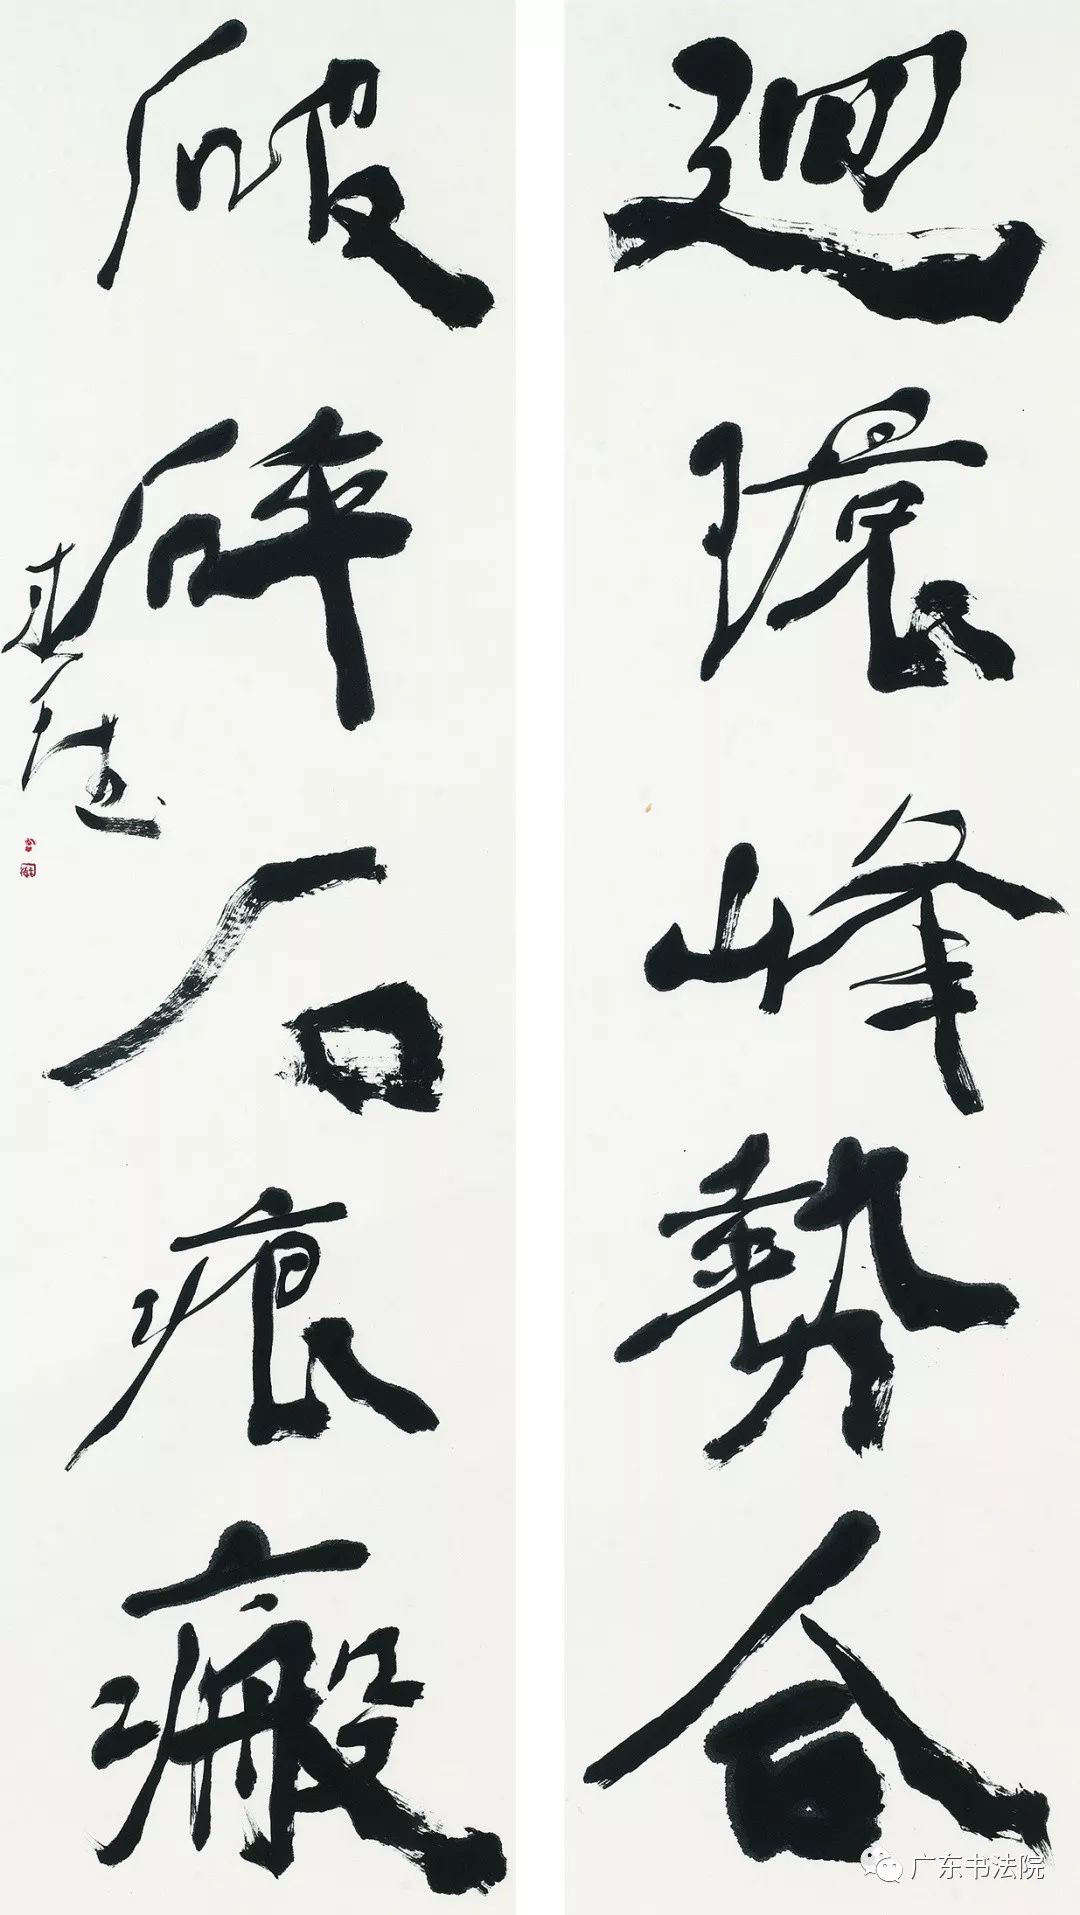 迴環峰勢合
破碎石痕瘢
广东书法院